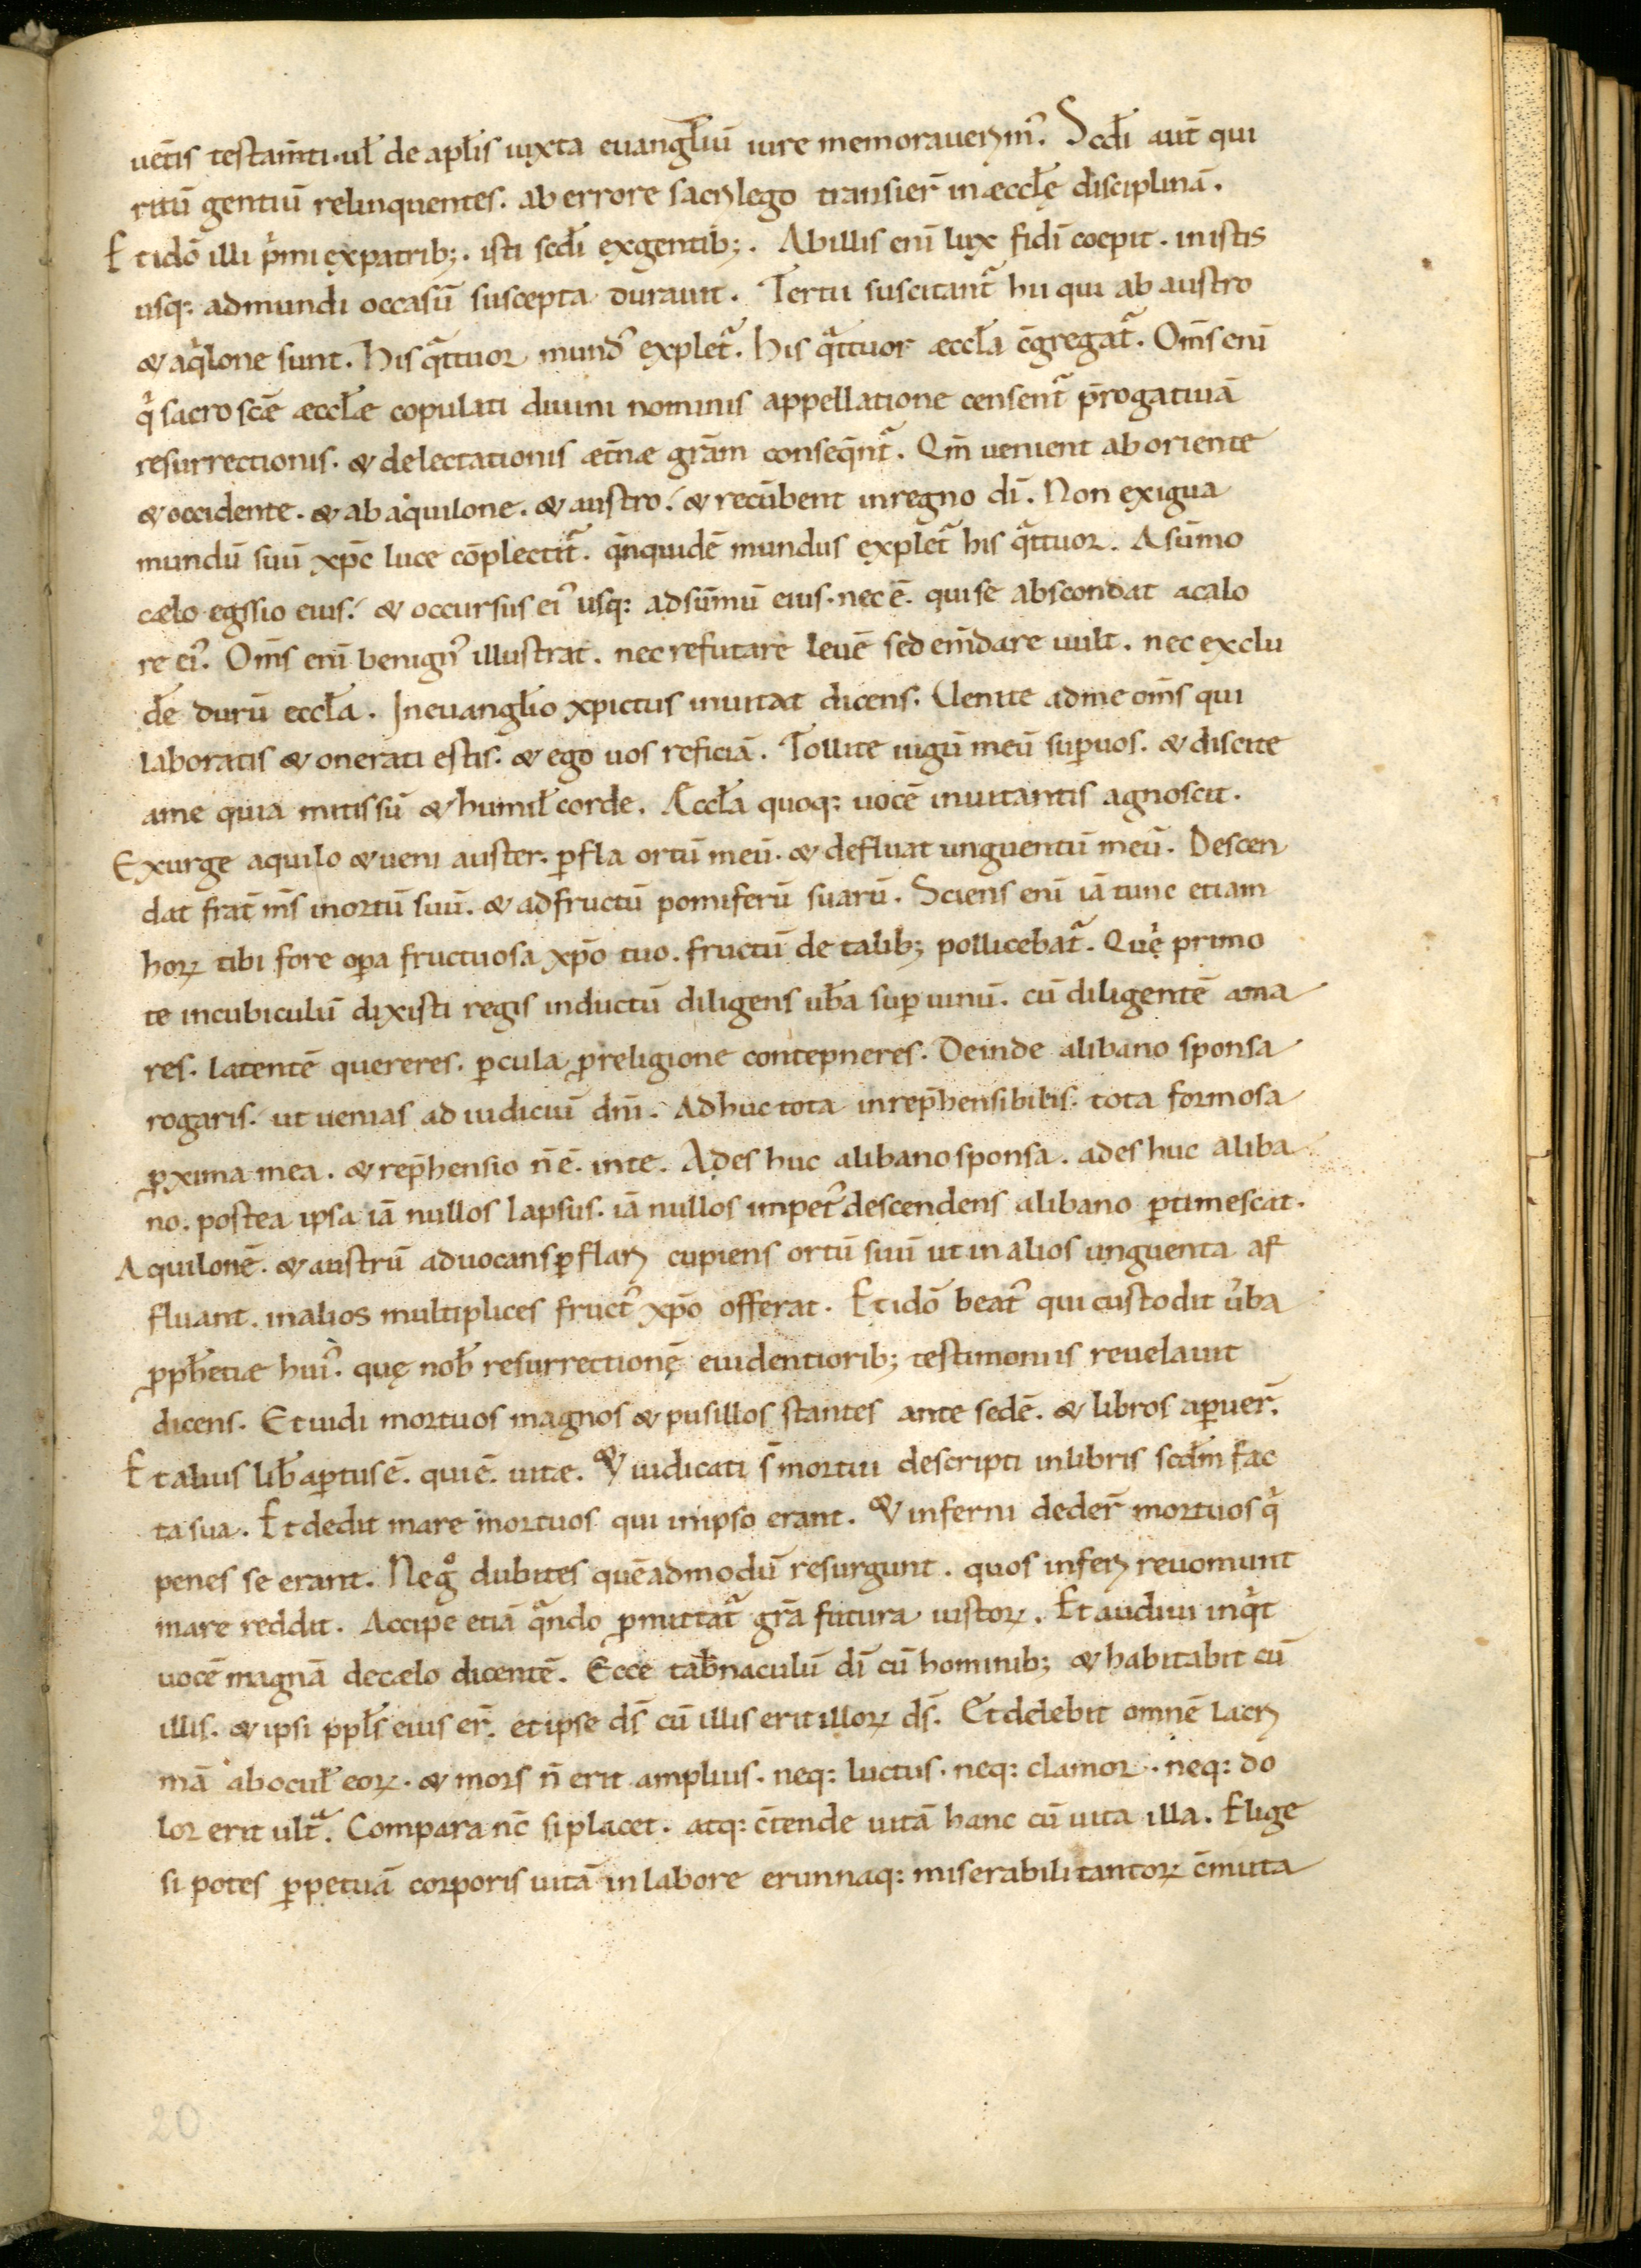 uet̄is testam̄ti. ul̄ de apl̄is iuxta euangl̄iū iure memorauerim᾽. Scd̄i aut̄ qui
ritū gentiū relinquentes. ab errore sacrilego transier̄ in æccl̄ę disciplinā.
Et idō illi p̍mi ex patrib;. isti scd̄i ex gentib;. Ab illis enī lux fidī coepit. in istis
usq: ad mundi occasū suscepta durauit. Tertii suscitant᷑ hii qui ab austro
& aq̍lone sunt. His q̄ttuor mund᾽ explet᷑. his q̄ttuor æccl̄a c̄gregat᷑. Om̄s enī
q̍ sacro scē æccl̄æ copulati diuini nominis appellatione censent᷑ p̄rogatiuā
resurrectionis. & delectationis æt̄næ grām conseq̄nt᷑. Qm̄ uenient ab oriente
& occidente. & ab aquilone. & austro. & recūbent in regno dī. Non exigua
mundū suū xp̄c luce cōplectit᷑. q̄nquidē mundus explet᷑ his q̄ttuor. A sūmo
cælo egssio eius. & occursus ei᾽ usq: ad sūmū eius. nec ē. qui se abscondat a calo
re ei᾽. Om̄s enī benign᾽ illustrat. nec refutare leuē sed em̄dare uult. nec exclu
de̅ durū eccl̄a. In euangl̄io xpictus inuitat dicens. Uenite ad me om̄s qui
laboratis & onerati estis. & ego uos reficiā. Tollite iugū meū sup̱ uos. & discite
a me quia mitis sū & humil̄ corde. Æccl̄a quoq: uocē inuitantis agnoscit.
Exurge aquilo & ueni auster. p̱fla ortū meū. & defluat unguentū meū. Descen
dat frat̄ m̄s in ortū suū. & ad fructū pomiferū suarū. Sciens enī iā tunc etiam
hoꝝ tibi fore op̱a fructuosa xp̄o tuo. fructū de talib; pollicebat᷑. Quę primo
te in cubiculū dixisti regis inductū diligens ub̄a sup̱ uinū. cū diligentē ama
res. latentē quereres. p̱cula ꝓ religione contepneres. Deinde a libano sponsa
rogaris. ut uenias ad iudiciū dn̄i. Adhuc tota inrep̄hensibilis. tota formosa
ꝓxima mea. & rep̄hensio n̄ ē. in te. Ades huc a libano sponsa. ades huc a liba
no. postea ipsa iā nullos lapsus. iā nullos impet᾽ descendens a libano p̱timescat.
Aquilonē. & austrū aduocans p̱flari cupiens ortū suū ut in alios unguenta af
fluant. in alios multiplices fruct᾽ xp̄o offerat. Et idō beat᾽ qui custodit ūba
ꝓph̄etiæ hui᾽. quę nob̄ resurrectionę euidentiorib; testimoniis reuelauit
dicens. Et uidi mortuos magnos & pusillos stantes ante sedē. & libros ap̱uer̄.
Et alius lib̄ ap̱tus ē. qui ē. uitæ. & iudicati s̄ mortui descripti in libris scdm̄ fac
ta sua. Et dedit mare mortuos qui in ipso erant. & inferni deder̄ mortuos q̍
penes se erant. Neg̊ dubites quēadmodū resurgunt. quos inferi reuomunt
mare reddit. Accipe etiā q̄ndo p̱mittat᷑ grā futura iustoꝝ. Et audiui inq̍t
uocē magnā de cælo dicentē. Ecce tab̄naculū dī cū hominib; & habitabit cū
illis. & ipsi ppl̄s eius er̄. et ipse ds̄ cū illis erit illoꝝ ds̄. Et delebit omnē lacri
mā ab ocul̄ eoꝝ. & mors n̄ erit amplius. neq: luctus. neq: clamor. neq: do
lor erit ult᷑. Compara nc̄ si placet. atq: c̄tende uitā hanc cū uita illa. Elige
si potes p̱petuā corporis uitā in labore erunnaq: miserabili tantoꝝ c̄muta
20